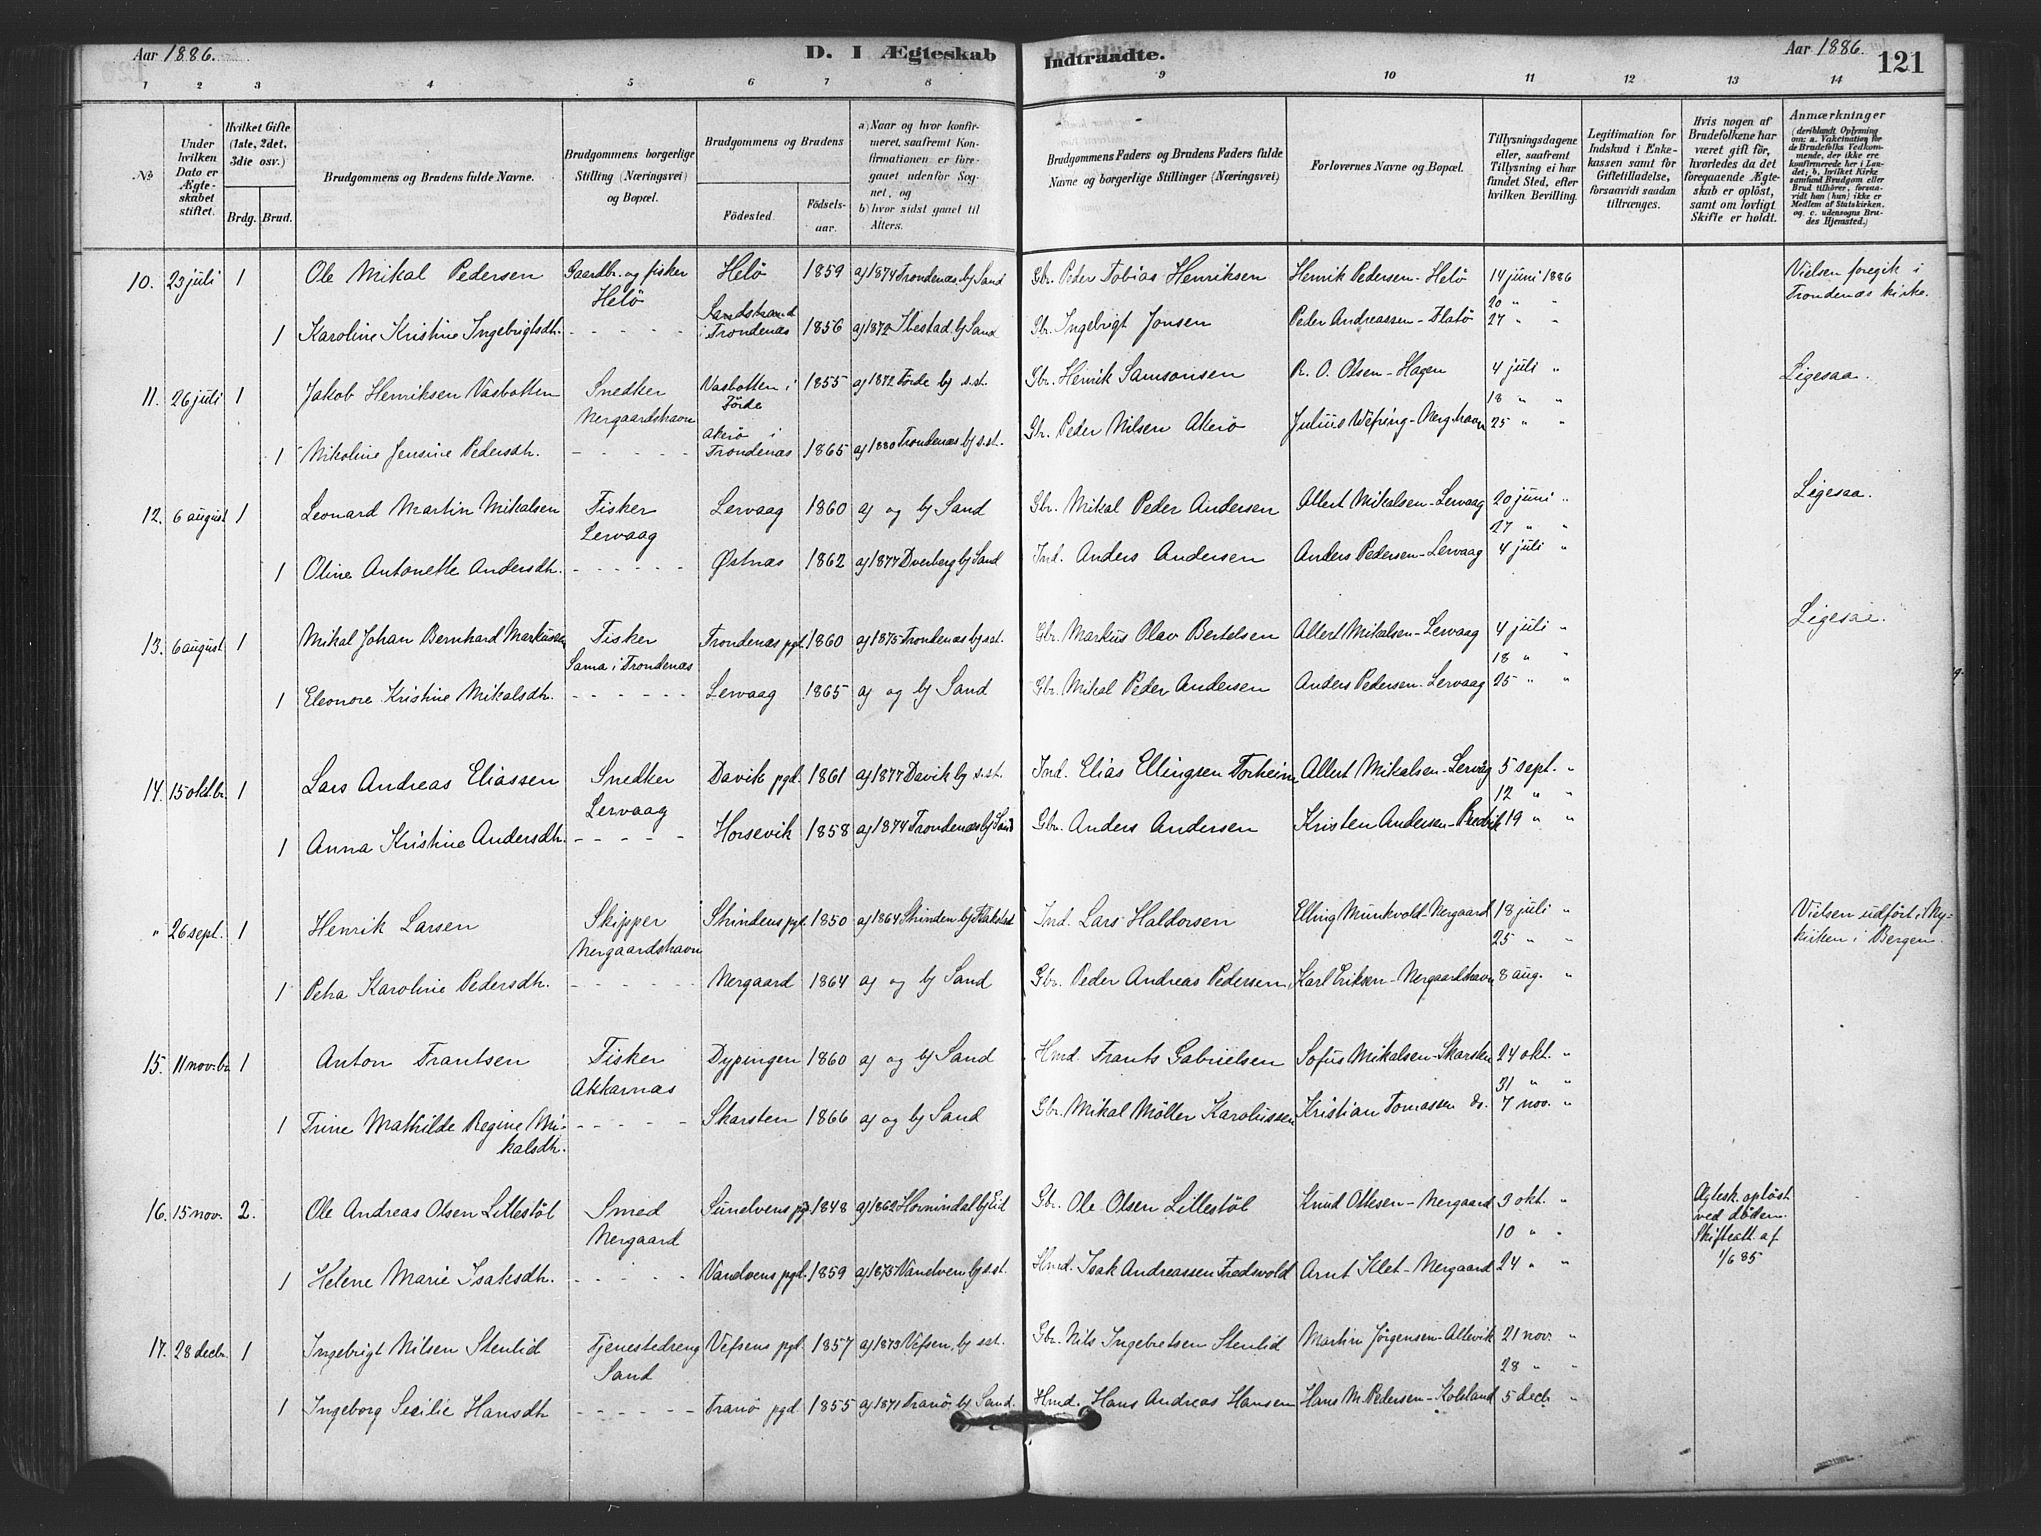 Aar 1886. D. I Ægteskab Indtraadte. Aar 1886. 121
1 2 3 4 5 6 7 8 9 10 11 12 13 14
No. Under hvilken Dato er Ægteskabet stiftet.
Hvilket Gifte (1ste, 2det, 3die osv.) Brdg. Brud.
Brudgommens og Brudens fulde Navne.
Brudgommens borgerlige Stilling (Næringsvei) og Bopæl.
Brudgommens og Brudens Födested. Födselsaar.
a) Naar og hvor konfirmeret, saafremt Konfirmationen er foregaaet udenfor Sognet, og b) hvor sidst gaaet til Alters.
Brudgommens Faders og Brudens Faders fulde Navne og borgerlige Stillinger (Næringsvei)
Forlovernes Navne og Bopæl.
Tillysningsdagene eller, saafremt Tillysning ei har fundet Sted, efter hvilken Bevilling.
Legitimation for Indskud i Enkekassen samt for Giftetilladelse, forsaavidt saadan tiltrænges.
Hvis nogen af Brudefolkene har været gift för, hvorledes da det foregaaende Ægteskab er oplöst, samt om lovligt Skifte er holdt.
Anmærkninger (deriblandt Oplysning om: a. Vakcination for de Brudefolks Vedkommende, der ikke ere konfirmerede her i Landet; b. hvilket Kirkesamfund Brudgom eller Brud tilhörer, forsaavidt han (hun) ikke er Medlem af Statskirken, og c. udensogns Brudes Hjemsted.)
10. 23 juli 1 Ole Mikal Pedersen Gaardbr. og fisker Helö Helö 1859 a) 1874 Trondenæs b) Sand Gbr. Peder Tobias Henriksen Henrik Pedersen - Helö 14 juni 1886 Vielsen foregik i Trondenæs kirke.
20 " "
1 Karoline Kristine Ingebrigtsdh. - - - - - Sandstrand i Trondenæs 1856 a) 1872 Ibestad b) Sand Gbr. Ingebrigt Jonsen Peder Andreassen - Flatö 27 " "
11. 26 juli 1 Jakob Henriksen Vasbotten Snedker Nergaardshavn Vasbotten i Förde 1855 a) 1872 Förde b) s.st. Gbr. Henrik Samsonsen R. O. Olsen - Hagen 4 juli " Ligesaa.
18 " "
1 Nikoline Jensine Pedersdh. - - - - - Akerö i Trondenæs 1865 a) 1880 Trondenæs b) s.st. Gbr. Peder Nilsen Akerö Julius Wefring - Nerg.havn 25 " "
12. 6 august 1 Leonard Martin Mikalsen Fisker Lervaag Lervaag 1860 a) og b) Sand Gbr. Mikal Peder Andersen Albert Mikalsen - Lervaag 20 juni " Ligesaa.
27 " "
1 Oline Antonette Andersdh. - - - - - Østnæs 1862 a) 1877 Dverberg b) Sand Ind. Anders Andersen Anders Pedersen - Lervaag 4 juli "
13. 6 august 1 Mikal Johan Bernhard Markussen Fisker Sama i Trondenæs Trondenæs pgd. 1860 a) 1875 Trondenæs b) s.st. Gbr. Markus Olav Bertelsen Albert Mikalsen - Lervaag 4 juli " Ligesaa.
18 " "
1 Eleonore Kristine Mikalsdh. - - - - - Lervaag 1865 a) og b) Sand Gbr. Mikal Peder Andersen Anders Pedersen - Lervaag 25 " "
14. 15 oktbr. 1 Lars Andreas Eliassen Snedker Lervaag Davik pgd. 1861 a) 1877 Davik b) s.st. Ind. Elias Ellingsen Torheim Albert Mikalsen - Lervåg 5 sept. "
12 " "
1 Anna Kristine Andersdh. - - - - - Horsevik 1858 a) 1874 Trondenæs b) Sand Gbr. Anders Andersen Kristen Andersen - 19 " "
" 26 sept. 1 Henrik Larsen Skipper Nergaardshavn Strindens pgd. 1850 a) 1864 Strinden b) Flakstad Ind. Lars Haldorsen Elling Munkvold - Nergaard 18 juli " Vielsen udfört i Nykirken i Bergen.
25 " "
1 Petra Karoline Pedersdh. - - - - - Nergaard 1864 a) og b) Sand Gbr. Peder Andreas Pedersen, Karl Eriksen - Nergaardhavn 8 aug. "
15. 11 novbr. 1 Anton Frantsen Fisker Akkarnæs Dypingen 1860 a) og b) Sand Hmd. Frants Gabrielsen Sofus Mikalsen - Skarsten 24 okt. "
31 " "
1 Trine Mathilde Regine Mikalsdh. - - - - - Skarsten 1866 a) og b) Sand Gbr. Mikal Möller Karolussen Kristian Tomasen do. 7 nov. "
16. 15 nov. 2. Ole Andreas Olsen Lillestöl Smed Nergaard Sundvens pgd. 1848 a) 1862 Hornindal b) Eid Gbr. Ole Olsen Lillestöl Knud Ottesen - Nergaard 3 okt. " Ægtesk. oplöst ved döden. Skifteatt. af 1/6 85
10 " "
1 Helene Marie Isaksdh. - - - - - Vandvens pgd. 1859 a) 1875 Vandven b) s.st. Hmd. Isak Andreassen Fredsvold Arnt Klet - Nergaard 24 " "
17. 28 decbr. 1 Ingebrigt Nilsen Stenlid Tjenestedreng Sand Vefsens pgd. 1857 a) 1873 Vefsen, b) s.st. Gbr. Nils Ingebretsen Stenlid Martin Jörgensen - Allevik 21 nov. "
28 " "
1 Ingeborg Sesilie Hansdh. - - - - - Tranö pgd 1855 a) 1871 Tranö. b) Sand. Hmd. Hans Andreas Hansen Hans M. Pedersen - Kolsland 5 decb. "